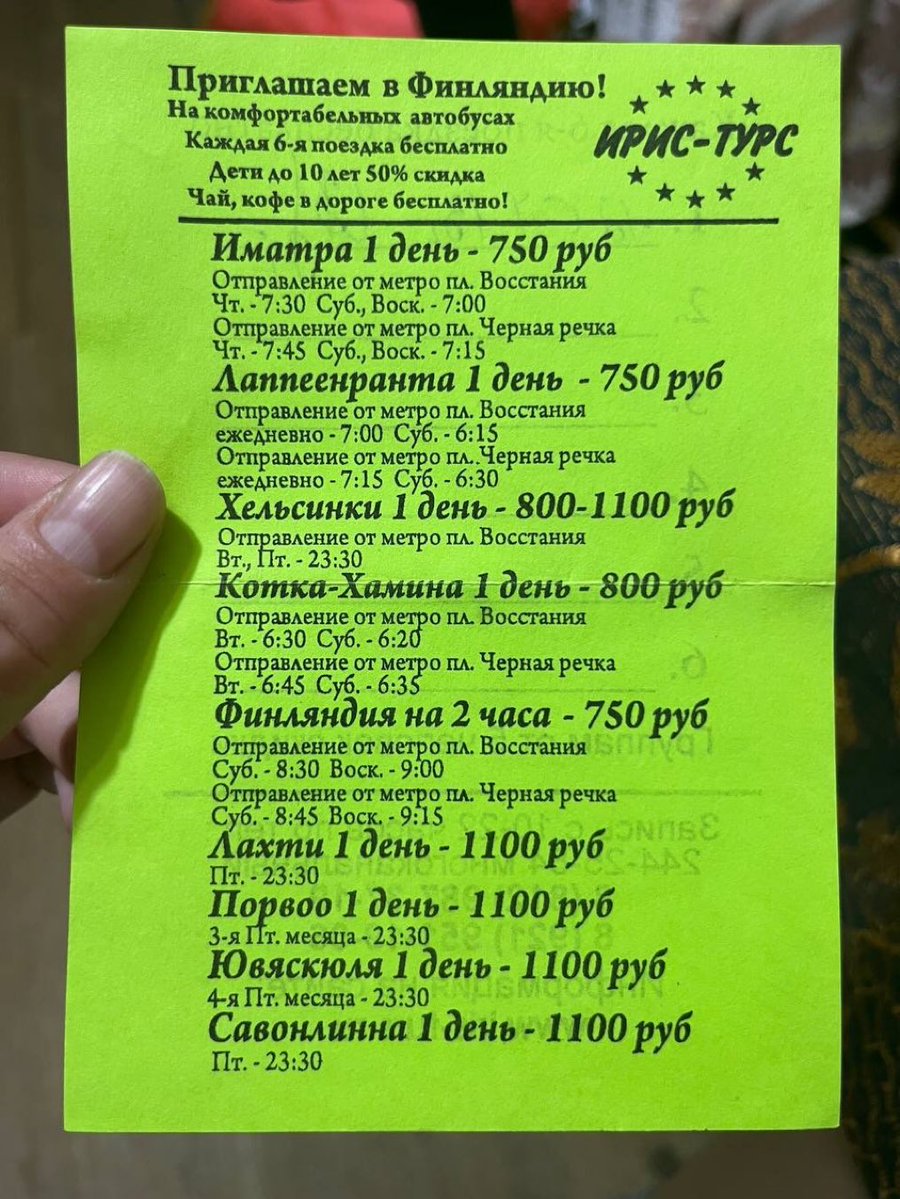 Приглашаем в Финляндию!
На комфортабельных автобусах
Каждая 6-я поездка бесплатно
Дети до 10 лет 50% скидка
Чай, кофе в дороге бесплатно!
ИРИС-ТУРС
Иматра 1 день - 750 руб
Отправление от метро пл. Восстания
Чт. - 7:30 Суб., Воск. - 7:00
Отправление от метро пл. Черная речка
Чт. - 7:45 Суб., Воск. - 7:15
Лаппеенранта 1 день - 750 руб
Отправление от метро пл. Восстания
ежедневно - 7:00 Суб. - 6:15
Отправление от метро пл. Черная речка
ежедневно - 7:15 Суб. - 6:30
Хельсинки 1 день - 800-1100 руб
Отправление от метро пл. Восстания
Вт., Пт. - 23:30
Котка-Хамина 1 день - 800 руб
Отправление от метро пл. Восстания
Вт. - 6:30 Суб. - 6:20
Отправление от метро пл. Черная речка
Вт. - 6:45 Суб. - 6:35
Финляндия на 2 часа - 750 руб
Отправление от метро пл. Восстания
Суб. - 8:30 Воск. - 9:00
Отправление от метро пл. Черная речка
Суб. - 8:45 Воск. - 9:15
Лахти 1 день - 1100 руб
Пт. - 23:30
Порвоо 1 день - 1100 руб
3-я Пт. месяца - 23:30
Ювяскюля 1 день - 1100 руб
4-я Пт. месяца - 23:30
Савонлинна 1 день - 1100 руб
Пт. - 23:30